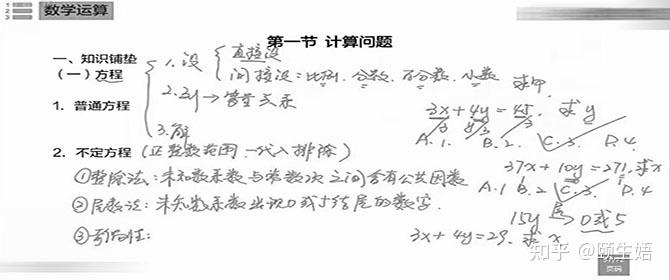 数学运算
第一节 计算问题
一、知识铺垫
(一)方程
1.设
直接设
间接设:比例、分数、百分数、小数
2.列→等量关系
3.解
1. 普通方程
3x+4y=45,求y
A.1. B.2. C.3. D.4.
2. 不定方程(正整数范围-代入排除)
①整除法:未知数系数与常数项之间含有公共因数
37x+10y=271,求x
A.1 B.2 C.3. D.4
②尾数法:未知数系数出现0或5结尾的数字.
15y → 0或5
③奇偶性:
3x+4y=29. 求x
知乎 @颐生婼
页码